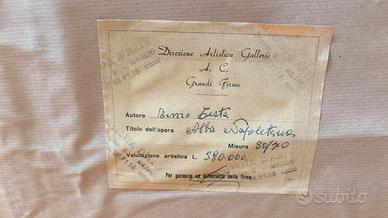 Direzione Artistica Gallerie
A. C.
Grandi Firme
Autore Renzo Testa
Titolo dell'opera Alba Napoletana
Misura 50/70
Valutazione artistica L. 380.000
Per garanzia ed autenticità della firma
subito